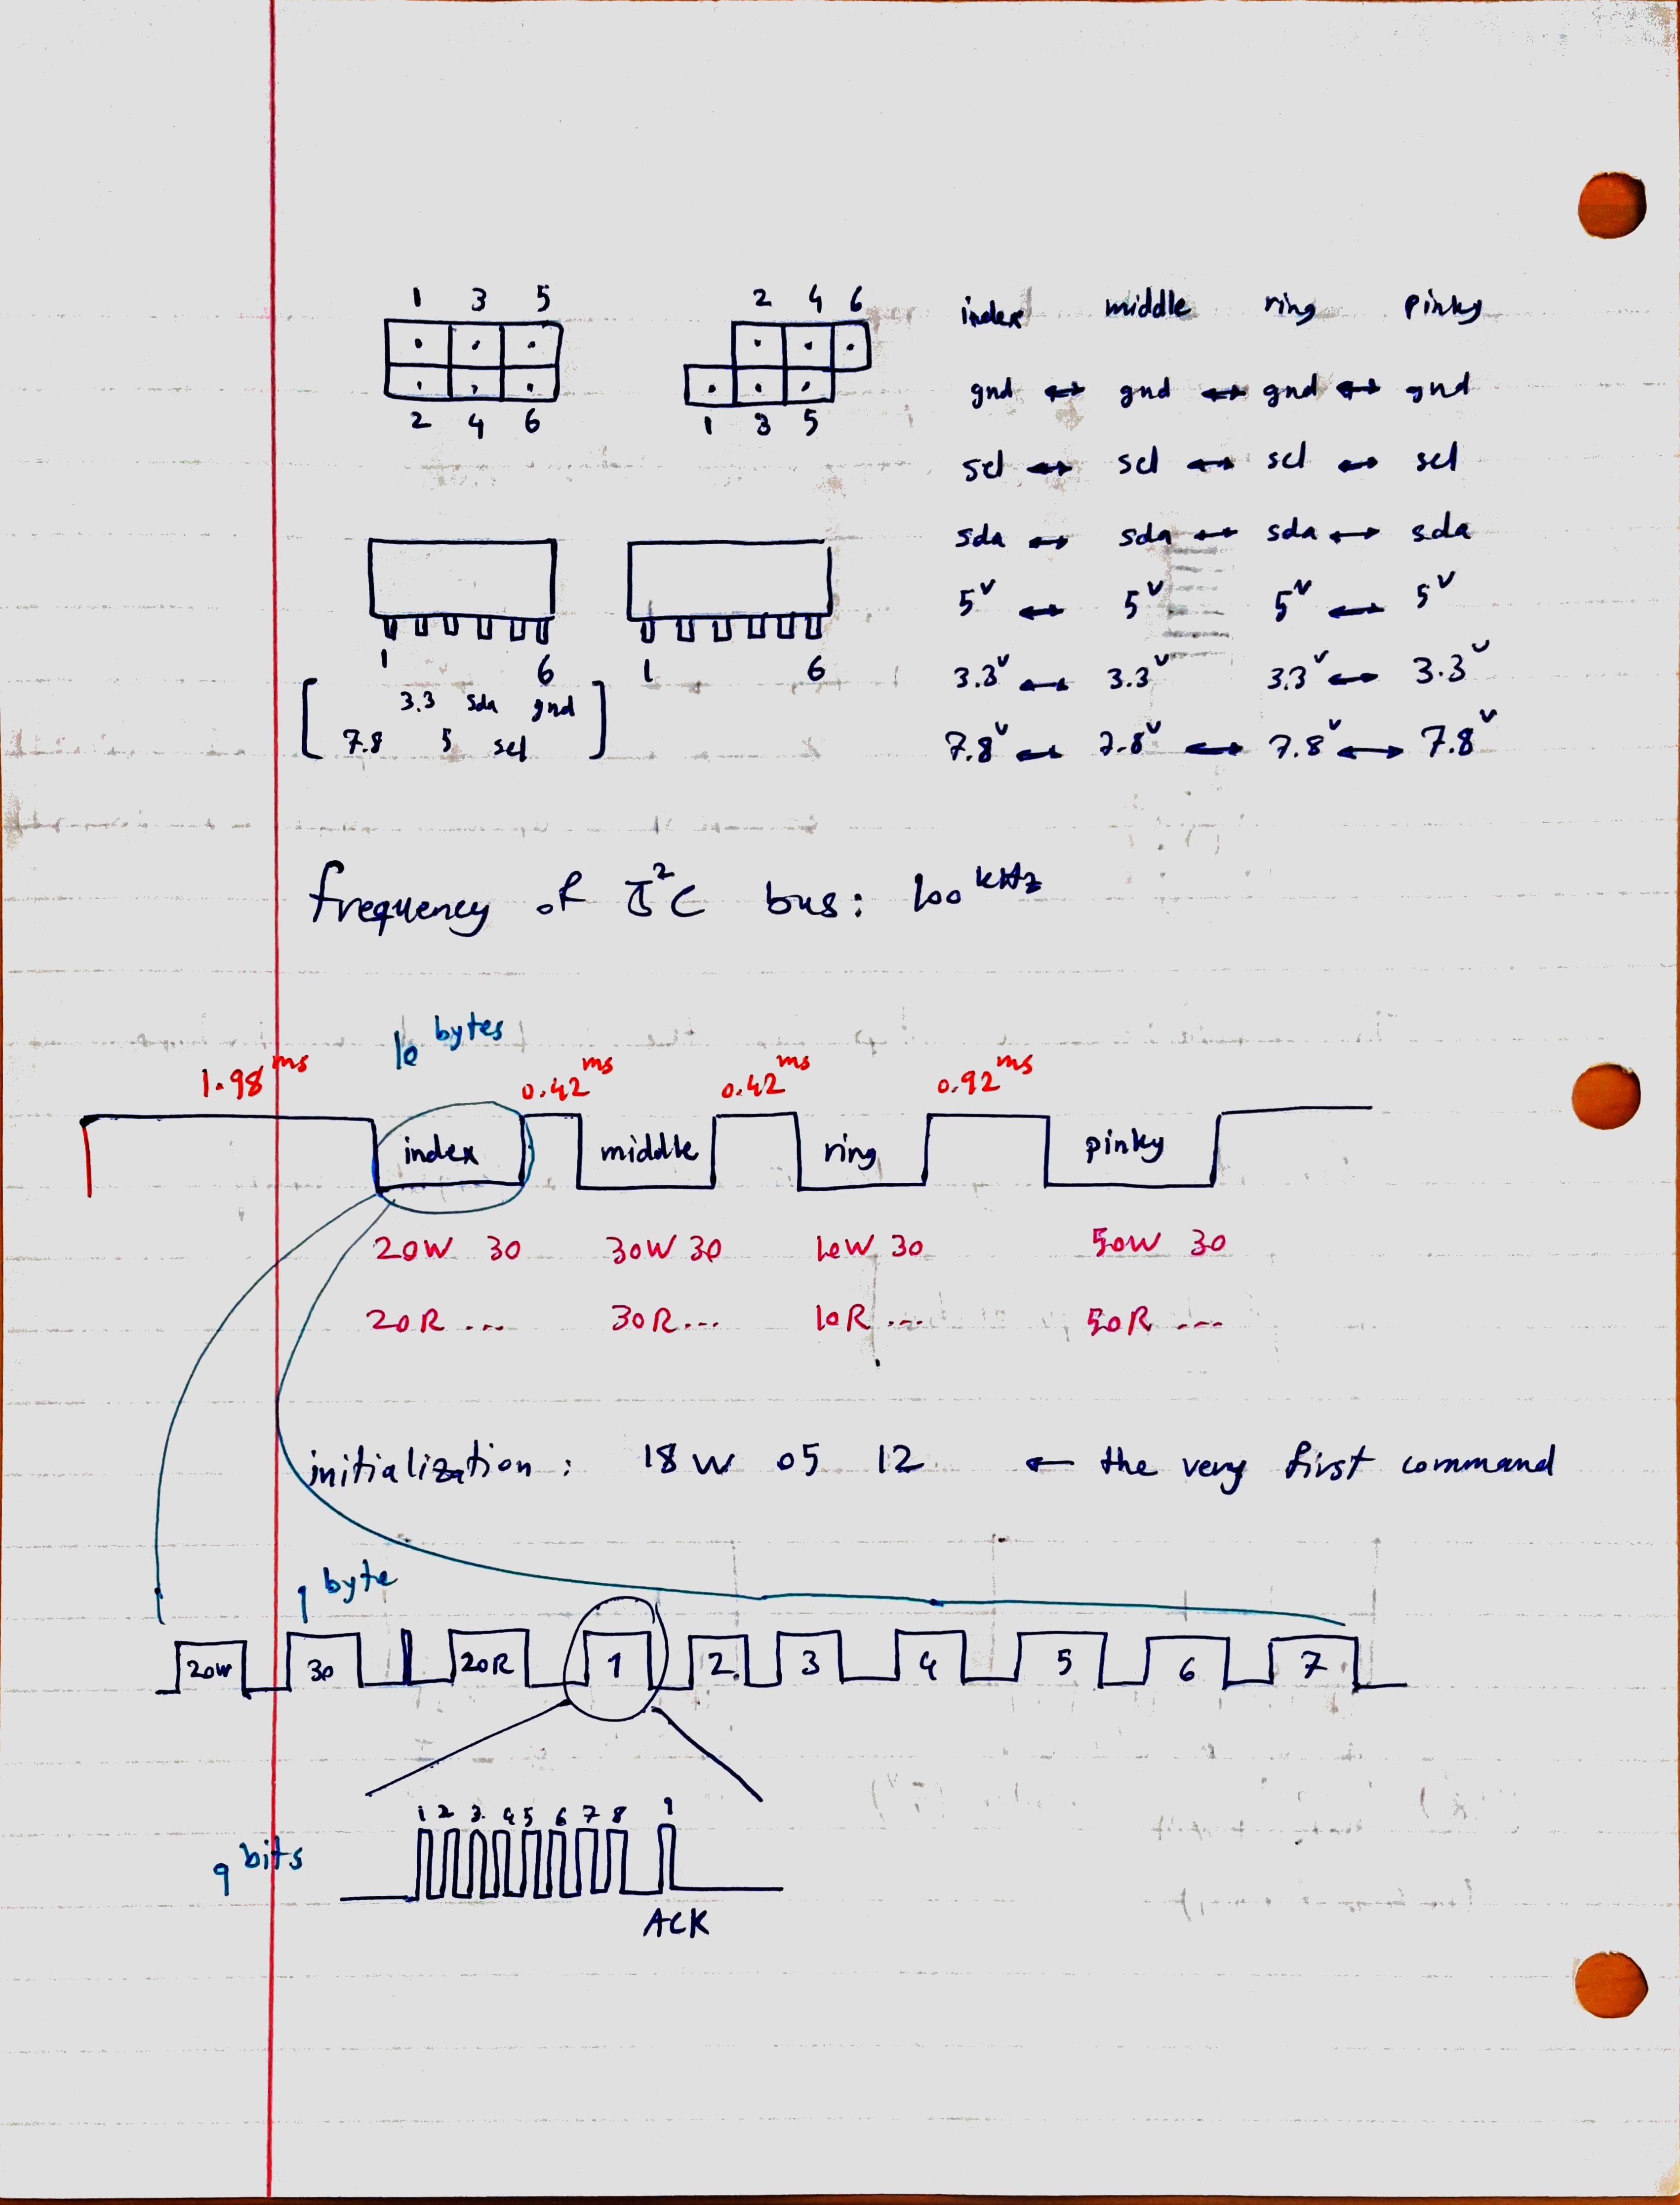 1 3 5
2 4 6
2 4 6
1 3 5
index middle ring pinky
gnd ↔ gnd ↔ gnd ↔ gnd
scl ↔ scl ↔ scl ↔ scl
sda ↔ sda ↔ sda ↔ sda
5v ↔ 5v 5v ↔ 5v
3.3v ↔ 3.3v 3.3v ↔ 3.3v
7.8v ↔ 7.8v ↔ 7.8v ↔ 7.8v
1 6
1 6
3.3 sda gnd
7.8 5 scl
frequency of I²C bus: 100 kHz
10 bytes
1.98 ms 0.42 ms 0.42 ms 0.92 ms
index middle ring pinky
20W 30 30W 30 10W 30 50W 30
20R ... 30R... 10R ... 50R ...
initialization: 18W 05 12 ← the very first command
1 byte
20W 30 20R 1 2 3 4 5 6 7
1 2 3 4 5 6 7 8 9
9 bits
ACK